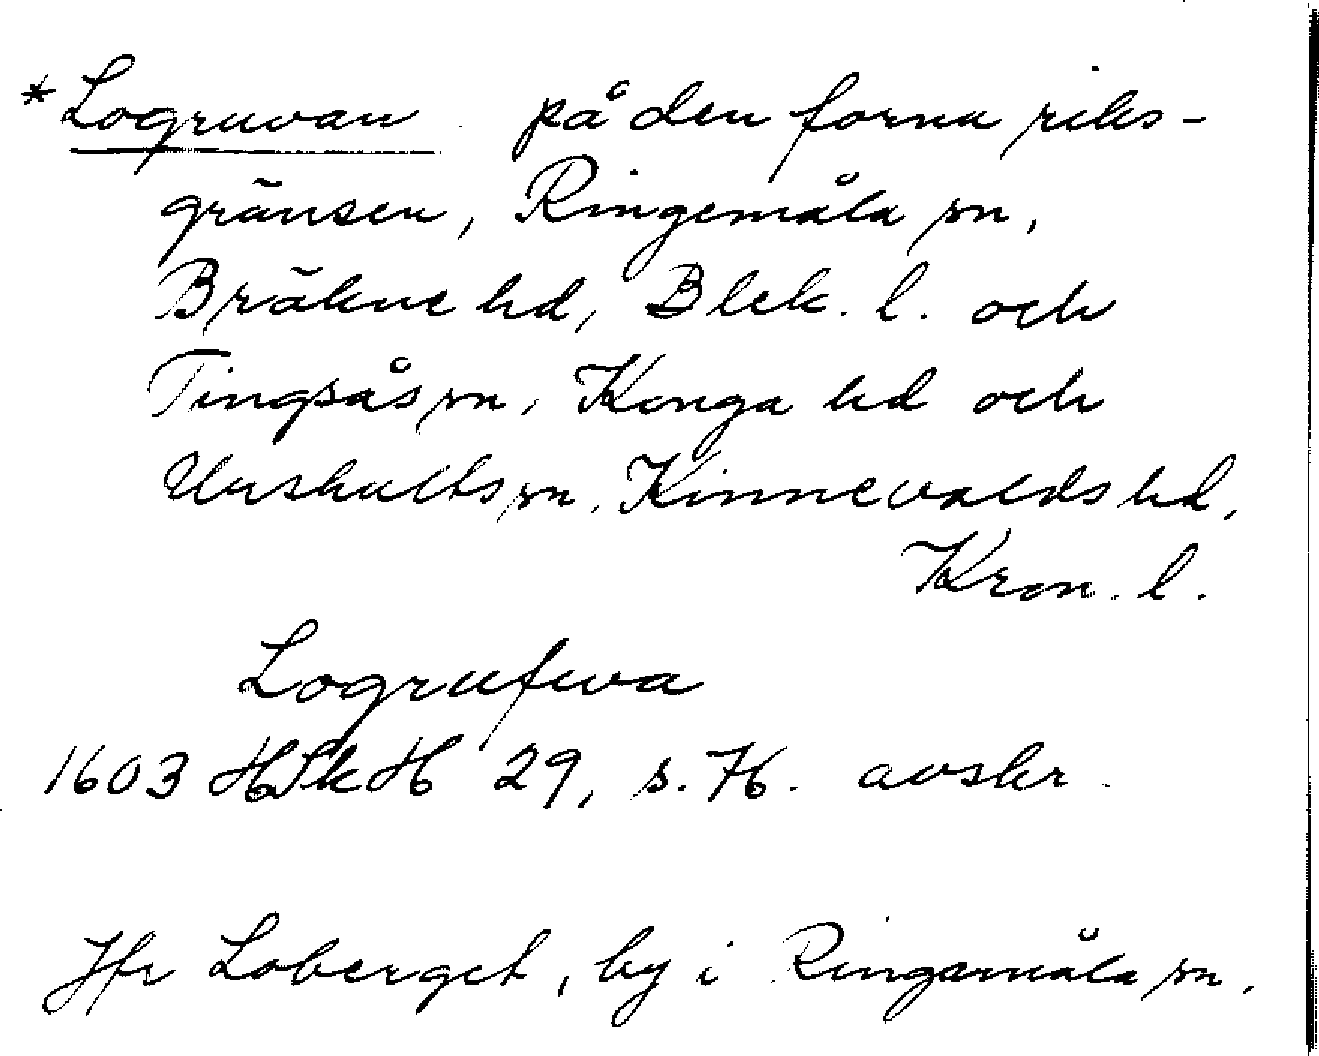 *Logruvan på den forna riks-
gränsen, Ringemåla sn,
Bräkne hd, Blek. l. och
Tingsås sn, Konga hd och
Urshults sn, Kinnevalds hd,
Kron. l.
Logrufwa
1603 HSkH 29, s. 76. avskr.
Jfr Loberget, by i Ringamåla sn.